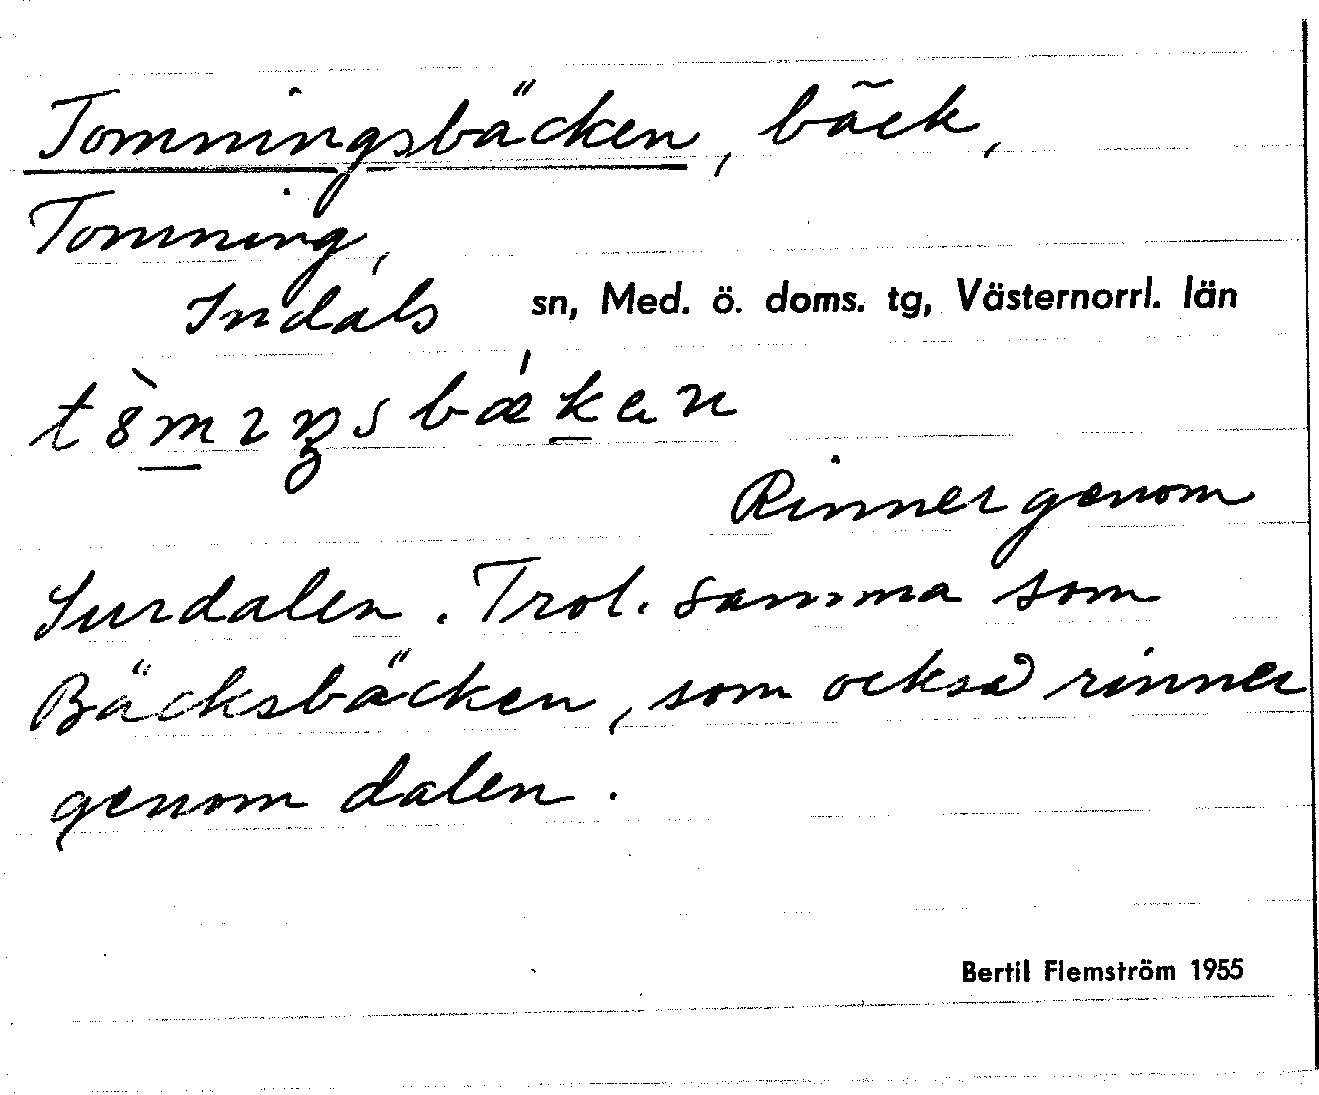 Tomningsbäcken, bäck,
Tomning,
Indals sn, Med. ö. doms. tg, Västernorrl. län
Rinner genom
Surdalen. Trol. samma som
Bäcksbäcken, som också rinner
genom dalen.
Bertil Flemström 1955